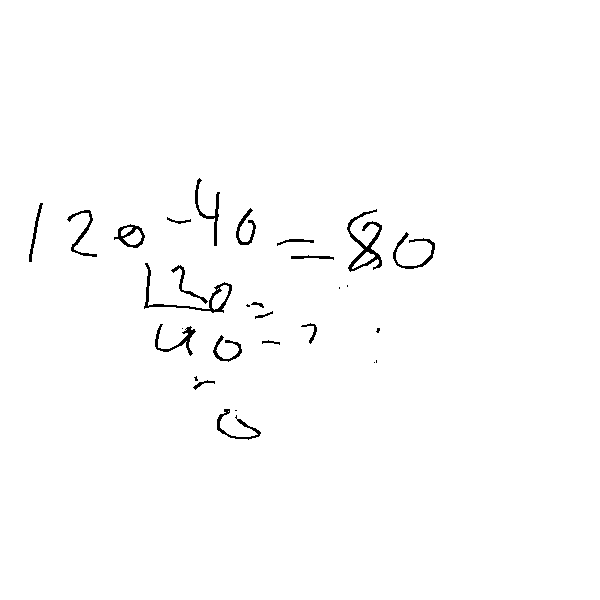 120-40=80
120=
40=?
=
0